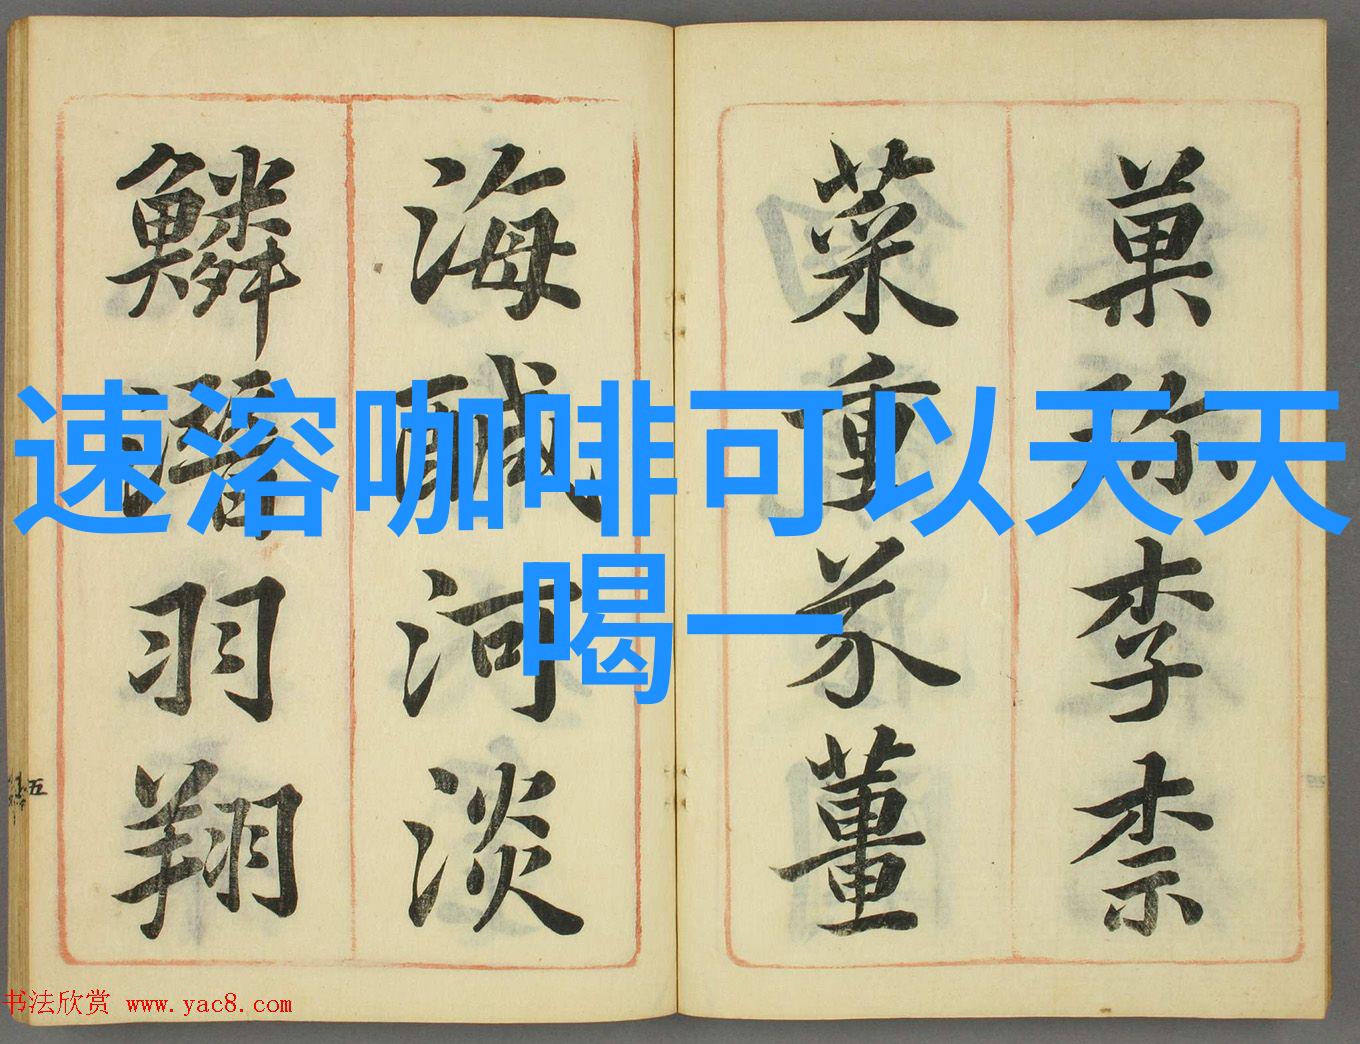 菓珎李柰
菜重芥薑
海醎河淡
鱗潛羽翔
速溶咖啡可以天天
喝一
五
书法欣赏 www.yac8.com